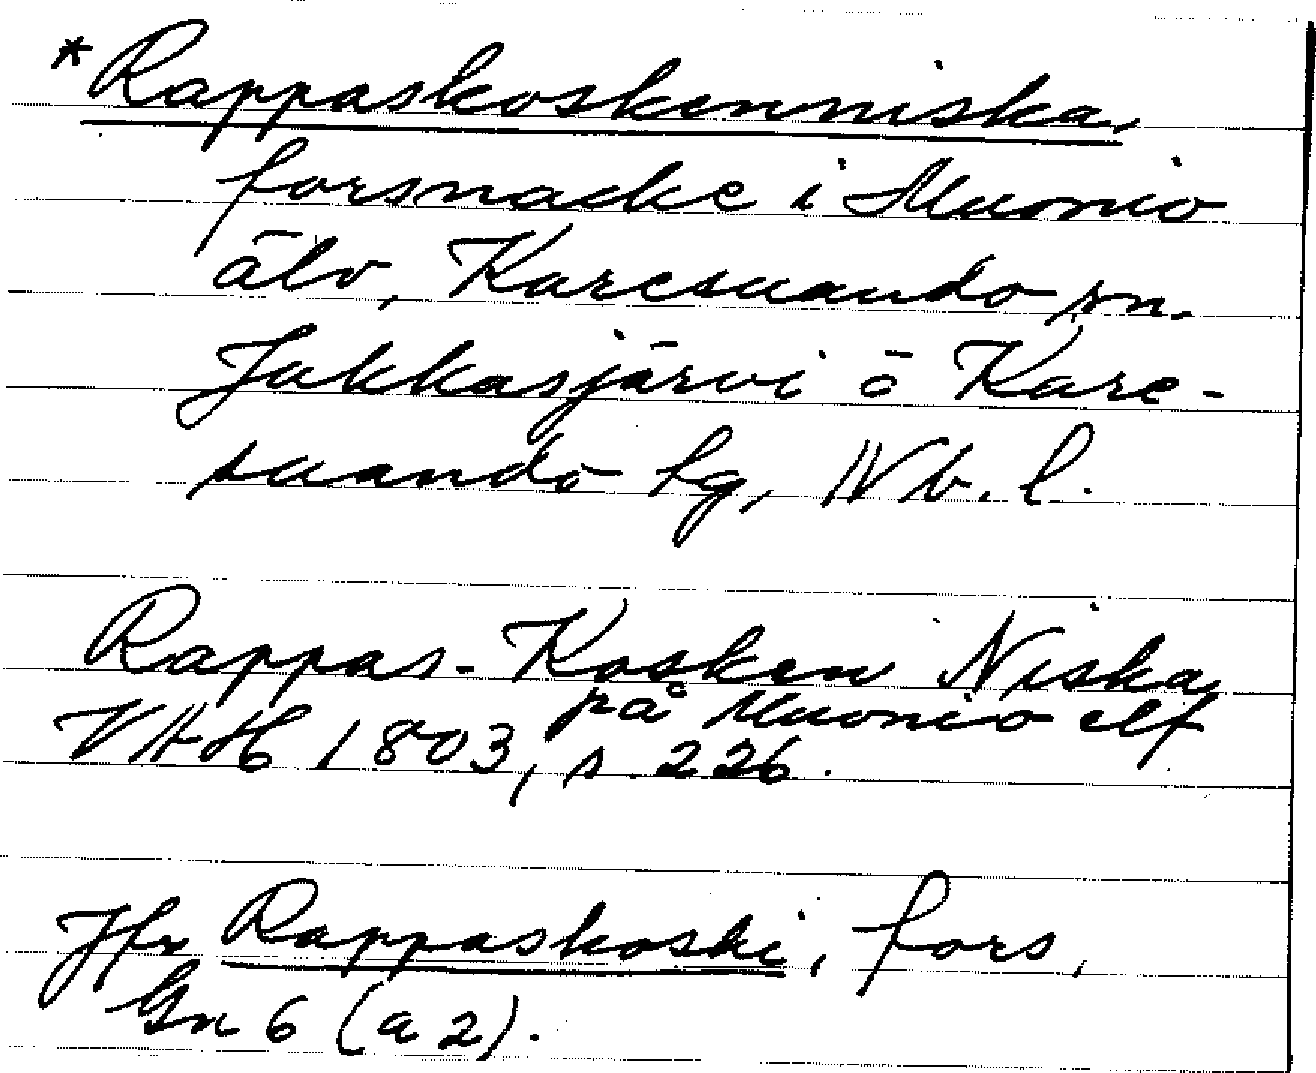 *Rappaskoskenniska,
forsnacke i Muonio
älv, Karesuando sn.
Jukkasjärvi o Kare-
suando tg, Nb. l.
Rappas-Kosken Niska,
på Muonio elf
VAH 1803, s 226.
Jfr Rappaskoski, fors,
Gn 6 (a 2).